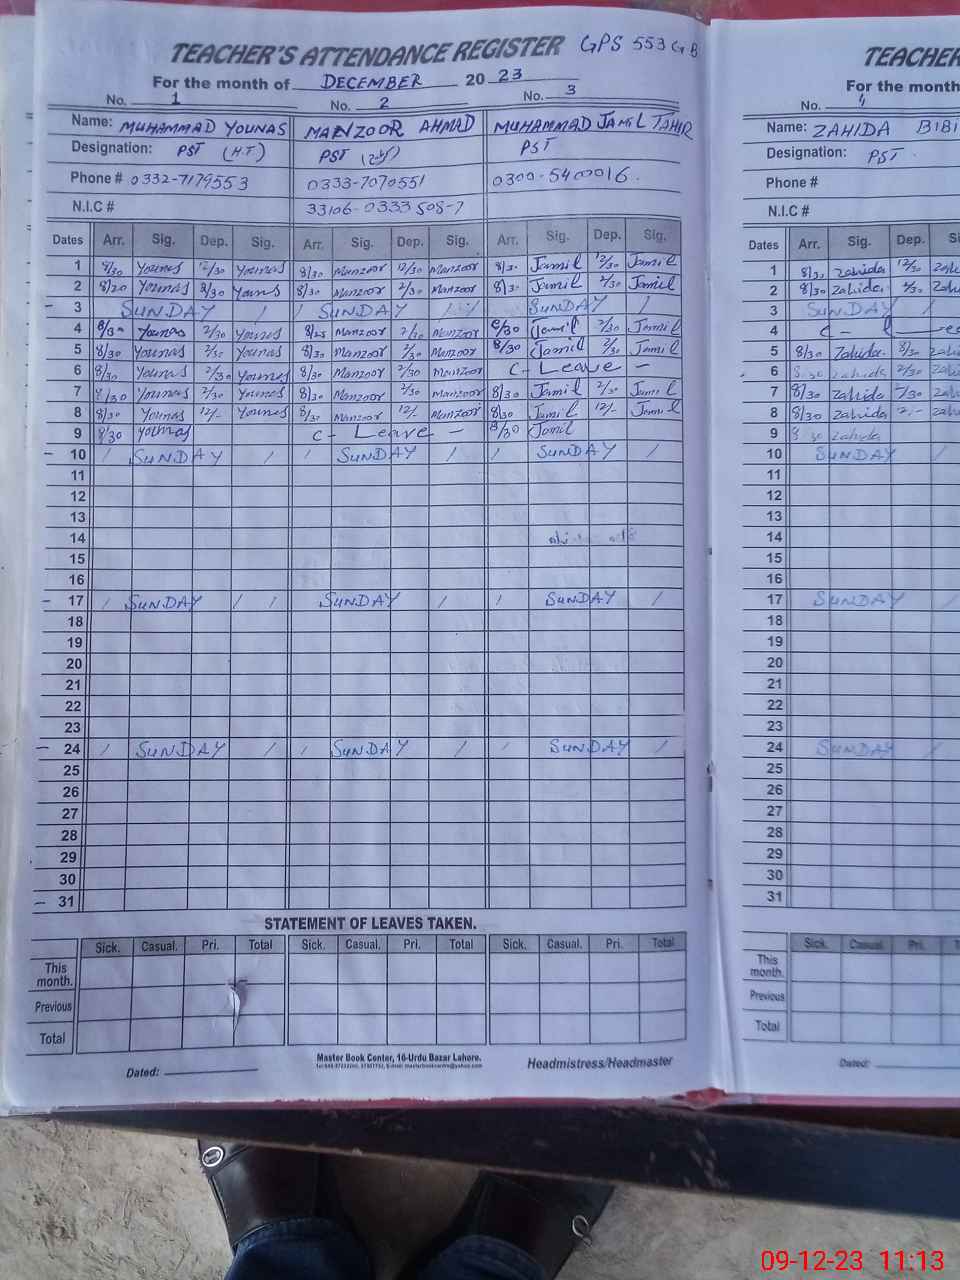 TEACHER'S ATTENDANCE REGISTER GPS 553 GB
For the month of DECEMBER 20 23
No. 1 No. 2 No. 3
Name: MUHAMMAD YOUNAS MANZOOR AHMAD MUHAMMAD JAMIL TAHIR
Designation: PST (H.T) PST PST
Phone # 0332-7179553 0333-7070551 0300-5400016.
N.I.C # 33106-0333508-7
Dates Arr. Sig. Dep. Sig. Arr. Sig. Dep. Sig. Arr. Sig. Dep. Sig.
1 8/30 Younas 12/30 Younas 8/30 Manzoor 12/30 Manzoor 8/3. Jamil 12/30 Jamil
2 8/30 Younas 2/30 Youns 8/30 Manzoor 2/30 Manzoor 8/3. Jamil 2/30 Jamil
3 SUNDAY / / SUNDAY / SUNDAY /
4 8/30 Younas 2/30 Younas Manzoor 2/30 Manzoor 8/30 Jamil 2/30 Jamil
5 8/30 Younas 2/30 Younas 8/30 Manzoor 2/30 Manzoor 8/30 Jamil 2/30 Jamil
6 8/30 Younas 2/30 Younas 8/30 Manzoor 2/30 Manzoor C- Leave -
7 8/30 Younas 2/30 Younas 8/30 Manzoor 2/30 Manzoor 8/30 Jamil 2/30 Jamil
8 8/30 Younas 12/- Younas 8/30 Manzoor 12/- Manzoor 8/30 Jamil 12/- Jamil
9 8/30 Younas C- Leave - 8/30 Jamil
- 10 / SUNDAY / / SUNDAY / / SUNDAY /
11
12
13
14
15
16
- 17 / SUNDAY / / SUNDAY / / SUNDAY /
18
19
20
21
22
23
- 24 / SUNDAY / / SUNDAY / / SUNDAY /
25
26
27
28
29
30
- 31
STATEMENT OF LEAVES TAKEN.
Sick. Casual. Pri. Total Sick. Casual. Pri. Total Sick. Casual. Pri. Total
This
month.
Previous
Total
Master Book Center, 16-Urdu Bazar Lahore.
Dated: Headmistress/Headmaster
TEACHER
For the month
No. 4
Name: ZAHIDA BIBI
Designation: PST.
Phone #
N.I.C #
Dates Arr. Sig. Dep.
1 8/3. Zahida 12/30
2 8/30 Zahida 2/30
3 SUNDAY /
4 C-
5 8/30 Zahida. 2/30
6 8/30 Zahida 2/30
7 8/30 Zahida 2/30
8 8/30 Zahida
9 8/30 Zahida
10 SUNDAY /
11
12
13
14
15
16
17 SUNDAY /
18
19
20
21
22
23
24 SUNDAY /
25
26
27
28
29
30
31
Sick. Casual. Pri.
This
month.
Previous
Total
Dated:
09-12-23 11:13